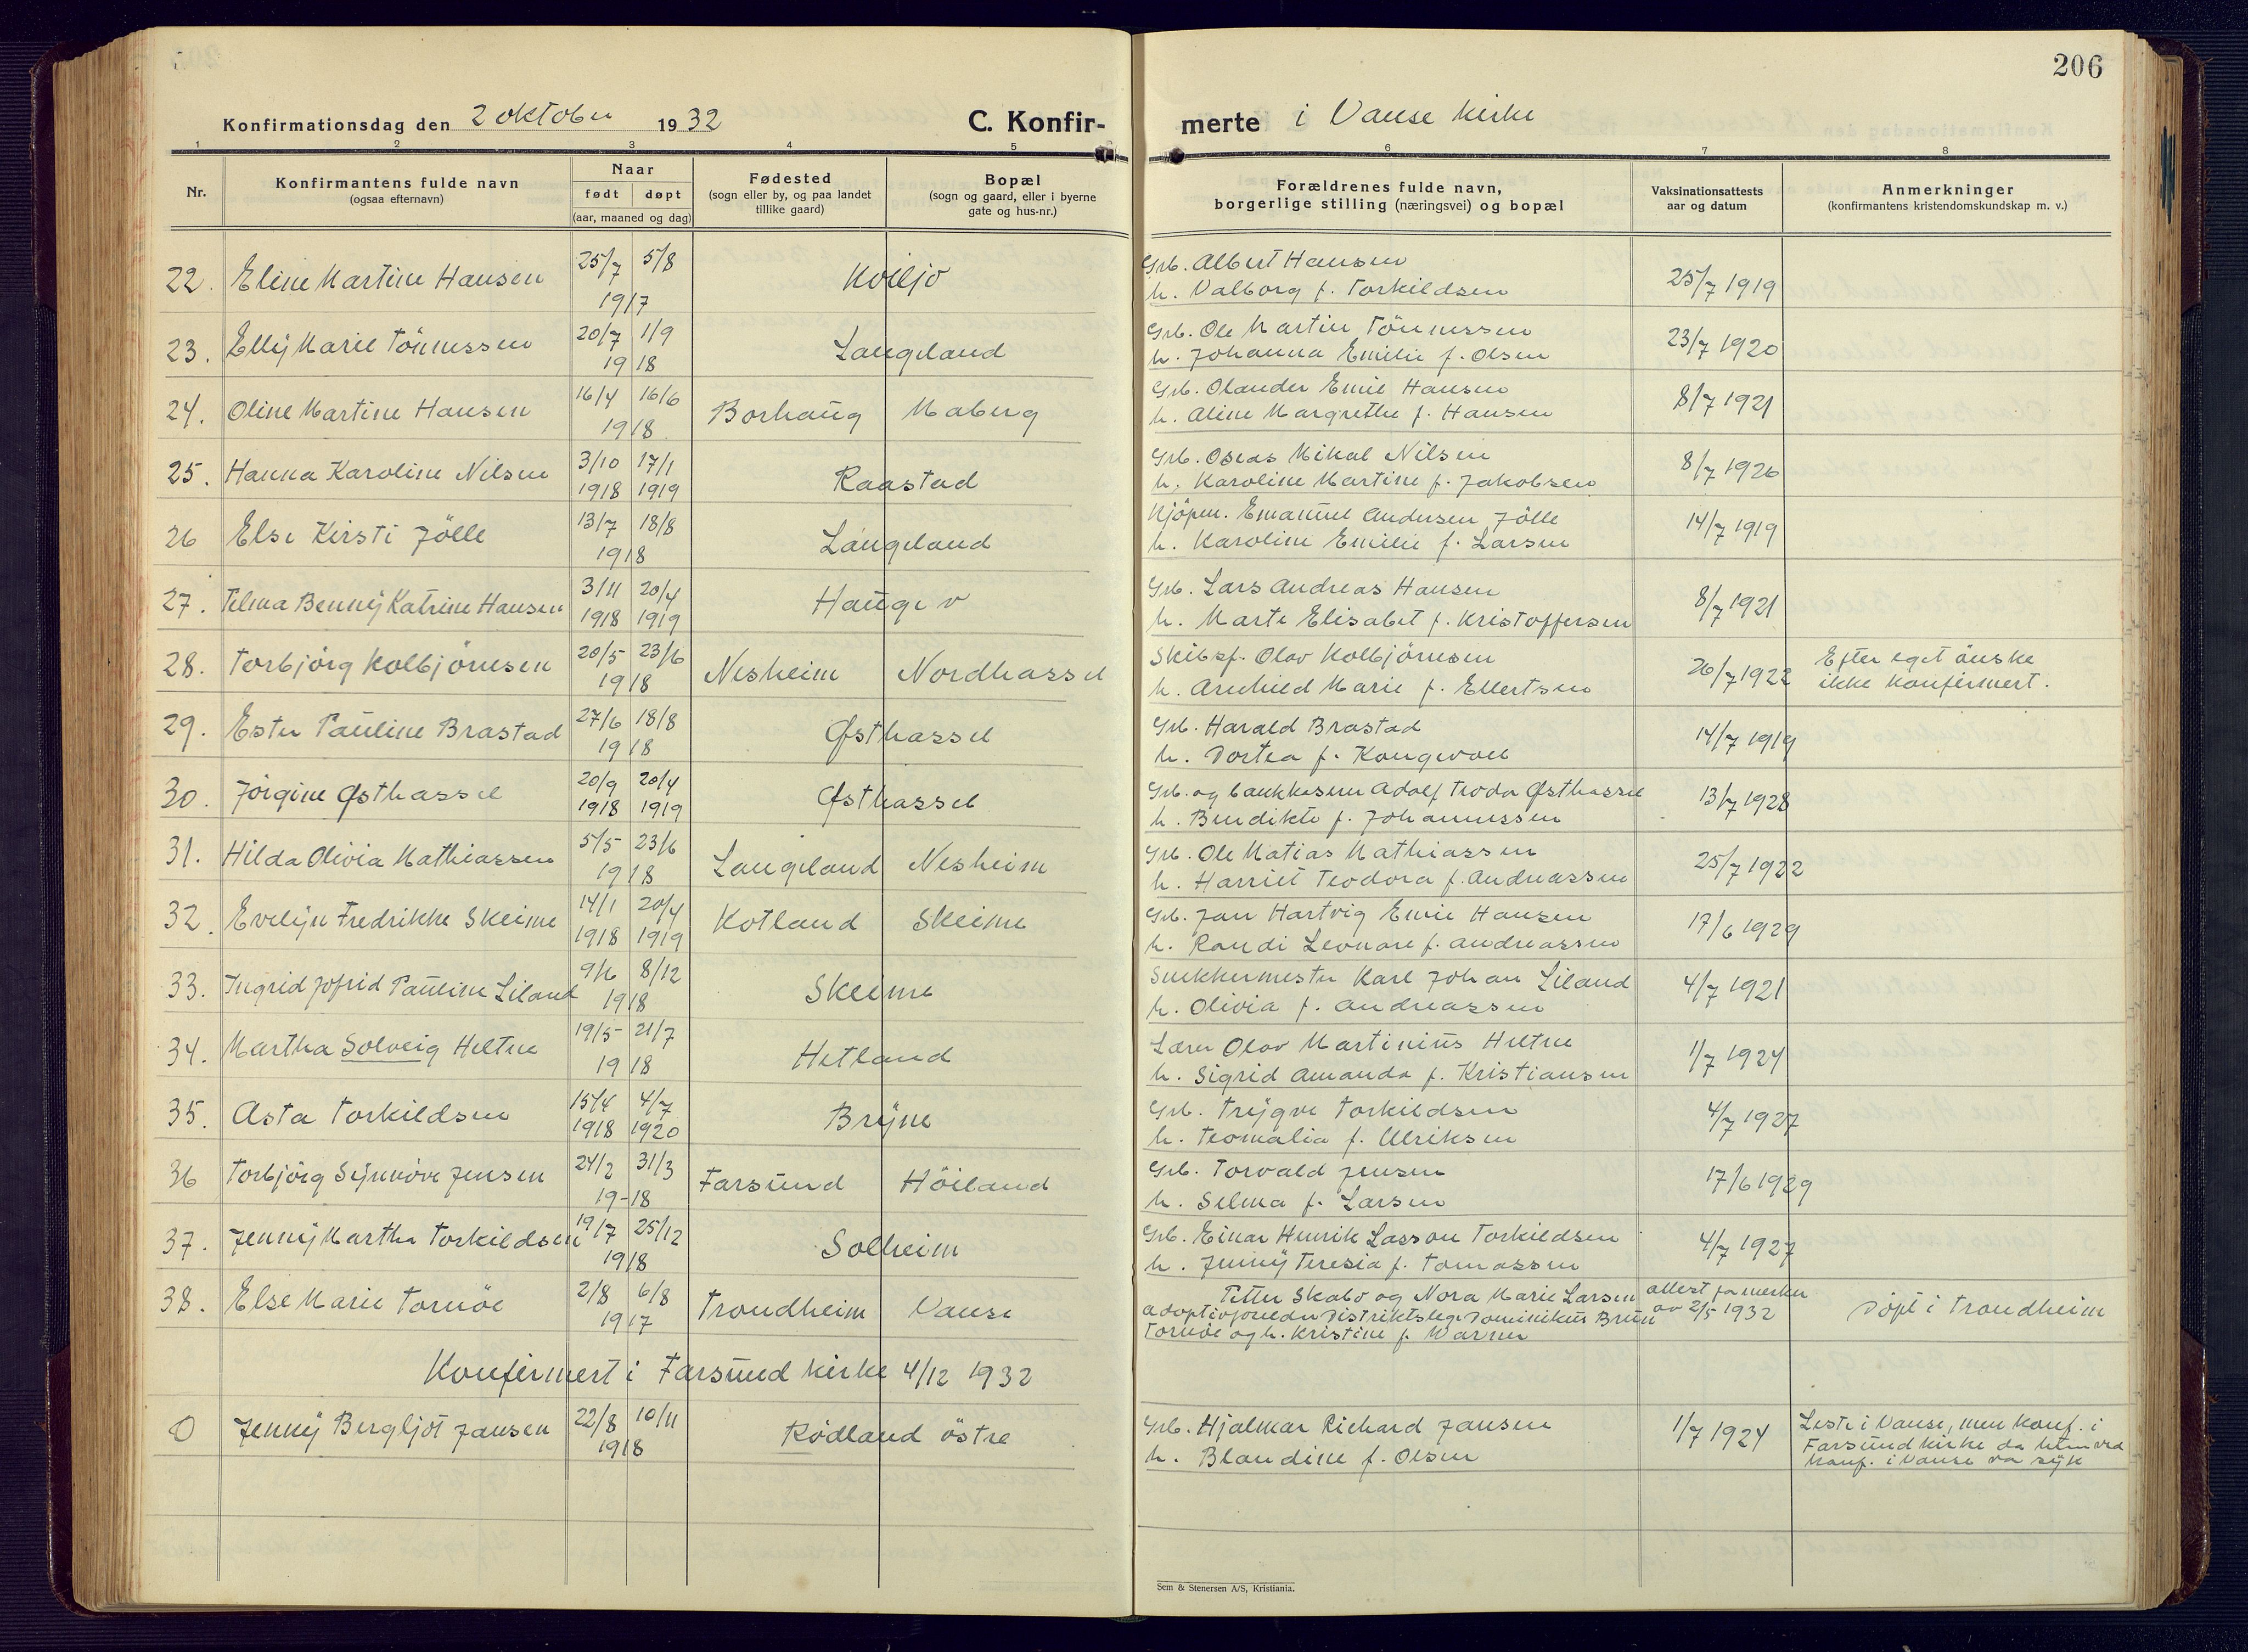 206
Konfirmationsdag den 2 oktober 1932 C. Konfir-
merte i Vanse kirke
1 2 3 4 5 6 7 8
Nr.
Konfirmantens fulde navn
(ogsaa efternavn)
Naar
født døpt
(aar, maaned og dag)
Fødested
(sogn eller by, og paa landet
tillike gaard)
Bopæl
(sogn og gaard, eller i byerne
gate og hus-nr.)
Forældrenes fulde navn,
borgerlige stilling (næringsvei) og bopæl
Vaksinationsattests
aar og datum
Anmerkninger
(konfirmantens kristendomskundskap m. v.)
22. Eline Martine Hansen 25/7 5/8 1917 Kviljo
Grb. Albert Hansen
h. Valborg f. Torkildsen
25/7 1919
23. Elly Marie Tönnessen 20/7 1/9 1918 Langeland
Grb. Ole Martin Tönnessen
h. Johanna Emilie f. Olsen
23/7 1920
24. Oline Martine Hansen 16/4 16/6 1918 Borhaug Maberg
Grb. Olander Emil Hansen
h. Aline Margrethe f. Hansen
8/7 1921
25. Hanna Karoline Nilsen 3/10 1918 17/1 1919 Raastad
Grb. Oseas Mikal Nilsen
h. Karoline Martine f. Jakobsen
8/7 1926
26 Else Kirsti Jölle 13/7 18/8 1918 Langeland
Kjöpm. Emanuel Andersen Jölle
h. Karoline Emilie f. Larsen
14/7 1919
27. Telma Benny Katrine Hansen 3/11 1918 20/4 1919 Hauge v
Grb. Lars Andreas Hansen
h. Marte Elisabet f. Kristoffersen
8/7 1921
28. Torbjörg Kolbjörnsen 20/5 23/6 1918 Nesheim Nordhassel
Skibsf. Olav Kolbjörnsen
h. Arnhild Marie f. Ellertsen
26/7 1922
Efter eget önske
ikke konfirmert.
29. Ester Pauline Brastad 27/6 18/8 1918 Østhassel
Grb. Harald Brastad
h. Dortea f. Kongevold
14/7 1919
30. Jörgine Østhassel 20/9 1918 20/4 1919 Østhassel
Grb. og bankkasserer Adolf Teodor Østhassel
h. Bendikte f. Johannessen
13/7 1928
31. Hilda Olivia Mathiassen 5/5 23/6 1918 Langeland Nesheim
Grb. Ole Matias Mathiassen
h. Harriet Teodora f. Andreassen
25/7 1922
32. Evelyn Fredrikke Skeime 14/1 1918 20/4 1919 Kotland Skeime
Grb. Jan Hartvig Emil Hansen
h. Randi Leonore f. Andreassen
17/6 1929
33. Ingrid Jofrid Pauline Liland 9/6 8/12 1918 Skeime
Snekkermester Karl Johan Liland
h. Olivia f. Andreassen
4/7 1921
34. Martha Solveig Heltne 19/5 21/7 1918 Hetland
Lærer Olav Martinius Heltne
h. Sigrid Amanda f. Kristiansen
1/7 1924
35. Asta Torkildsen 15/4 1918 4/7 1920 Bryne
Grb. Trygve Torkildsen
h. Teomalia f. Ulriksen
4/7 1927
36 Torbjörg Synnöve Jensen 24/2 31/3 19-18 Farsund Höiland
Grb. Torvald Jensen
h. Selma f. Larsen
17/6 1929
37. Jenny Martha Torkildsen 19/7 25/12 1918 Solheim
Grb. Einar Henrik Lasson Torkildsen
h. Jenny Teresia f. Tomassen
4/7 1927
38. Else Marie Tornöe 2/8 6/8 1917 Trondheim Vanse
Petter Skabo og Nora Marie Larsen
Adoptivforelder Distriktslege Dominikus Brun
Tornöe og h. Kristine f. Warner
attest fa merker
av 2/5 1932
Döpt i Trondheim
Konfirmert i Farsund kirke 4/12 1932
0 Jenny Bergljot Jansen 22/8 10/11 1918 Rödland östre
Grb. Hjalmar Richard Jansen
h. Blandine f. Olsen
1/7 1924
Leste i Vanse, men konf. i
Farsund kirke da hun ved
konf. i Vanse va syk
Sem & Stenersen A/S, Kristiania.